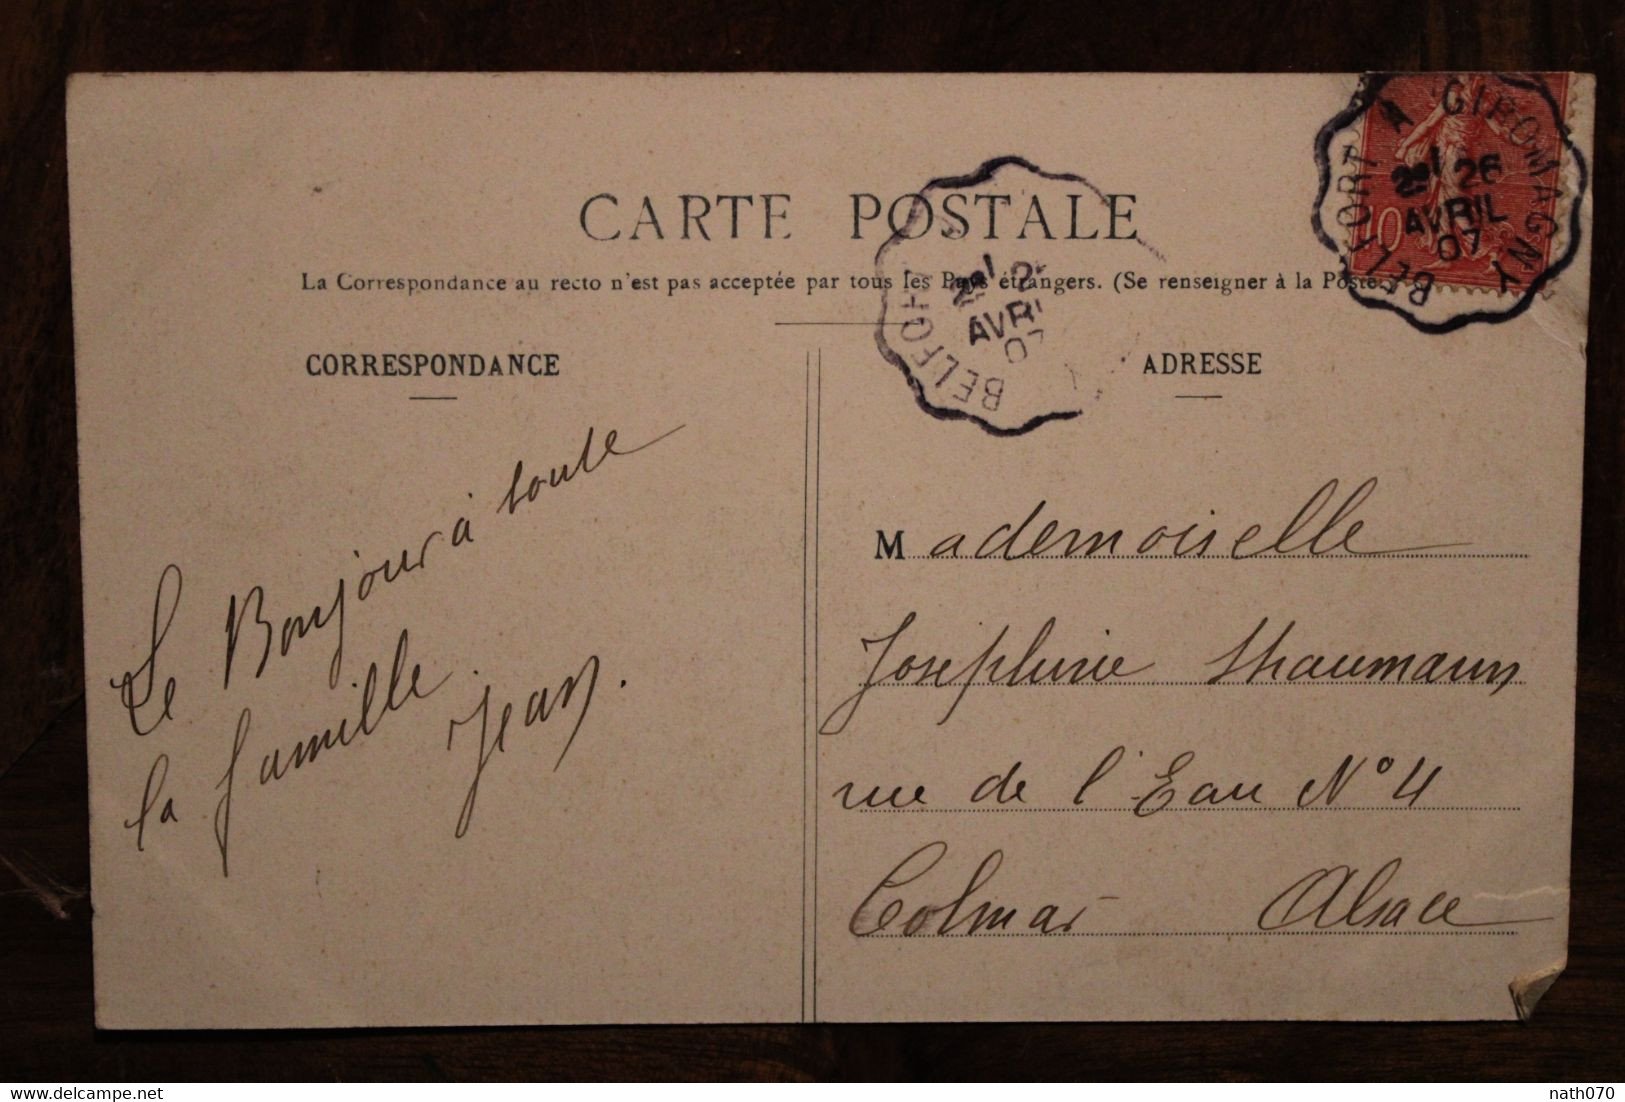 CARTE POSTALE
La Correspondance au recto n'est pas acceptée par tous les Pays étrangers. (Se renseigner à la Poste.)
CORRESPONDANCE
ADRESSE
BELFORT A GIROMAGNY
2e 26
AVRIL
07
10
BELFORT
2e 2
AVRI
07
Le Bonjour à toute
la famille
Jean.
Mademoiselle
Josephine Thaumann
rue de l'Eau N° 4
Colmar Alsace
delcampe.net
nath070